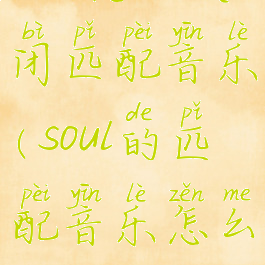 bì pǐ pèi yīn lè
闭匹配音乐
de pǐ
(soul的匹
pèi yīn lè zěn me
配音乐怎么